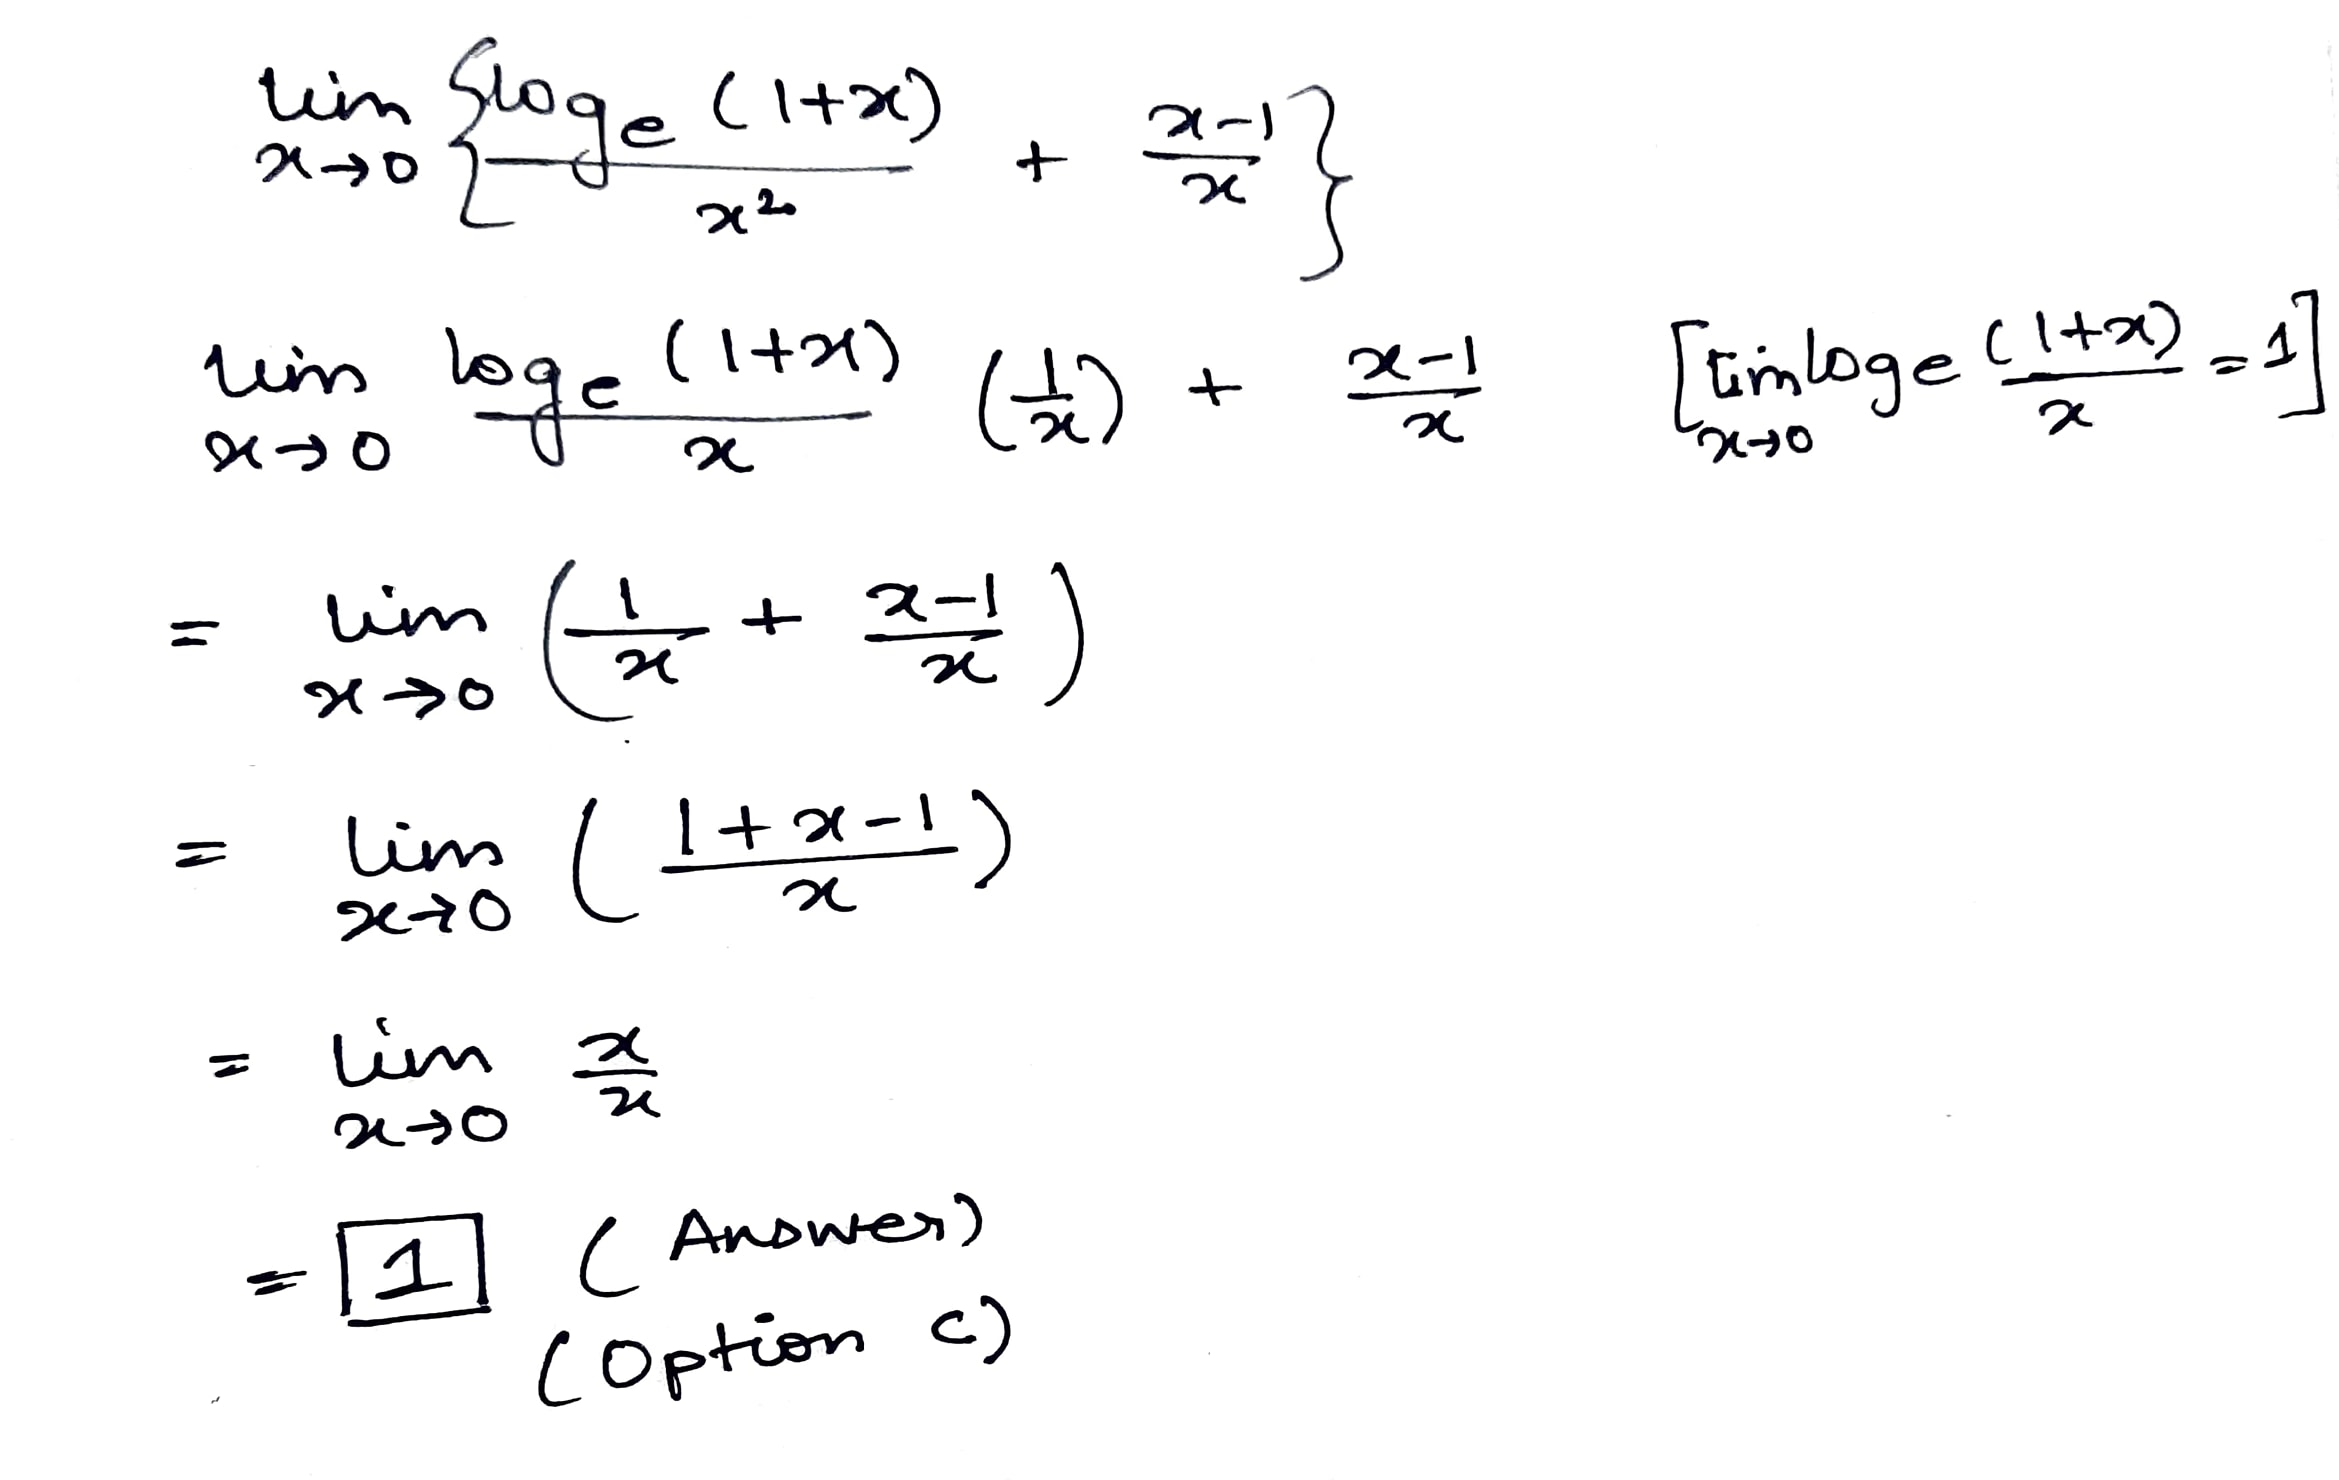 lim x→0 { log_e (1+x) / x² + (x-1) / x }
lim x→0 log_e (1+x) / x (1/x) + (x-1) / x [ lim x→0 log_e (1+x) / x = 1 ]
= lim x→0 ( 1/x + (x-1) / x )
= lim x→0 ( (1+x-1) / x )
= lim x→0 x/x
= 1 (Answer)
(Option c)